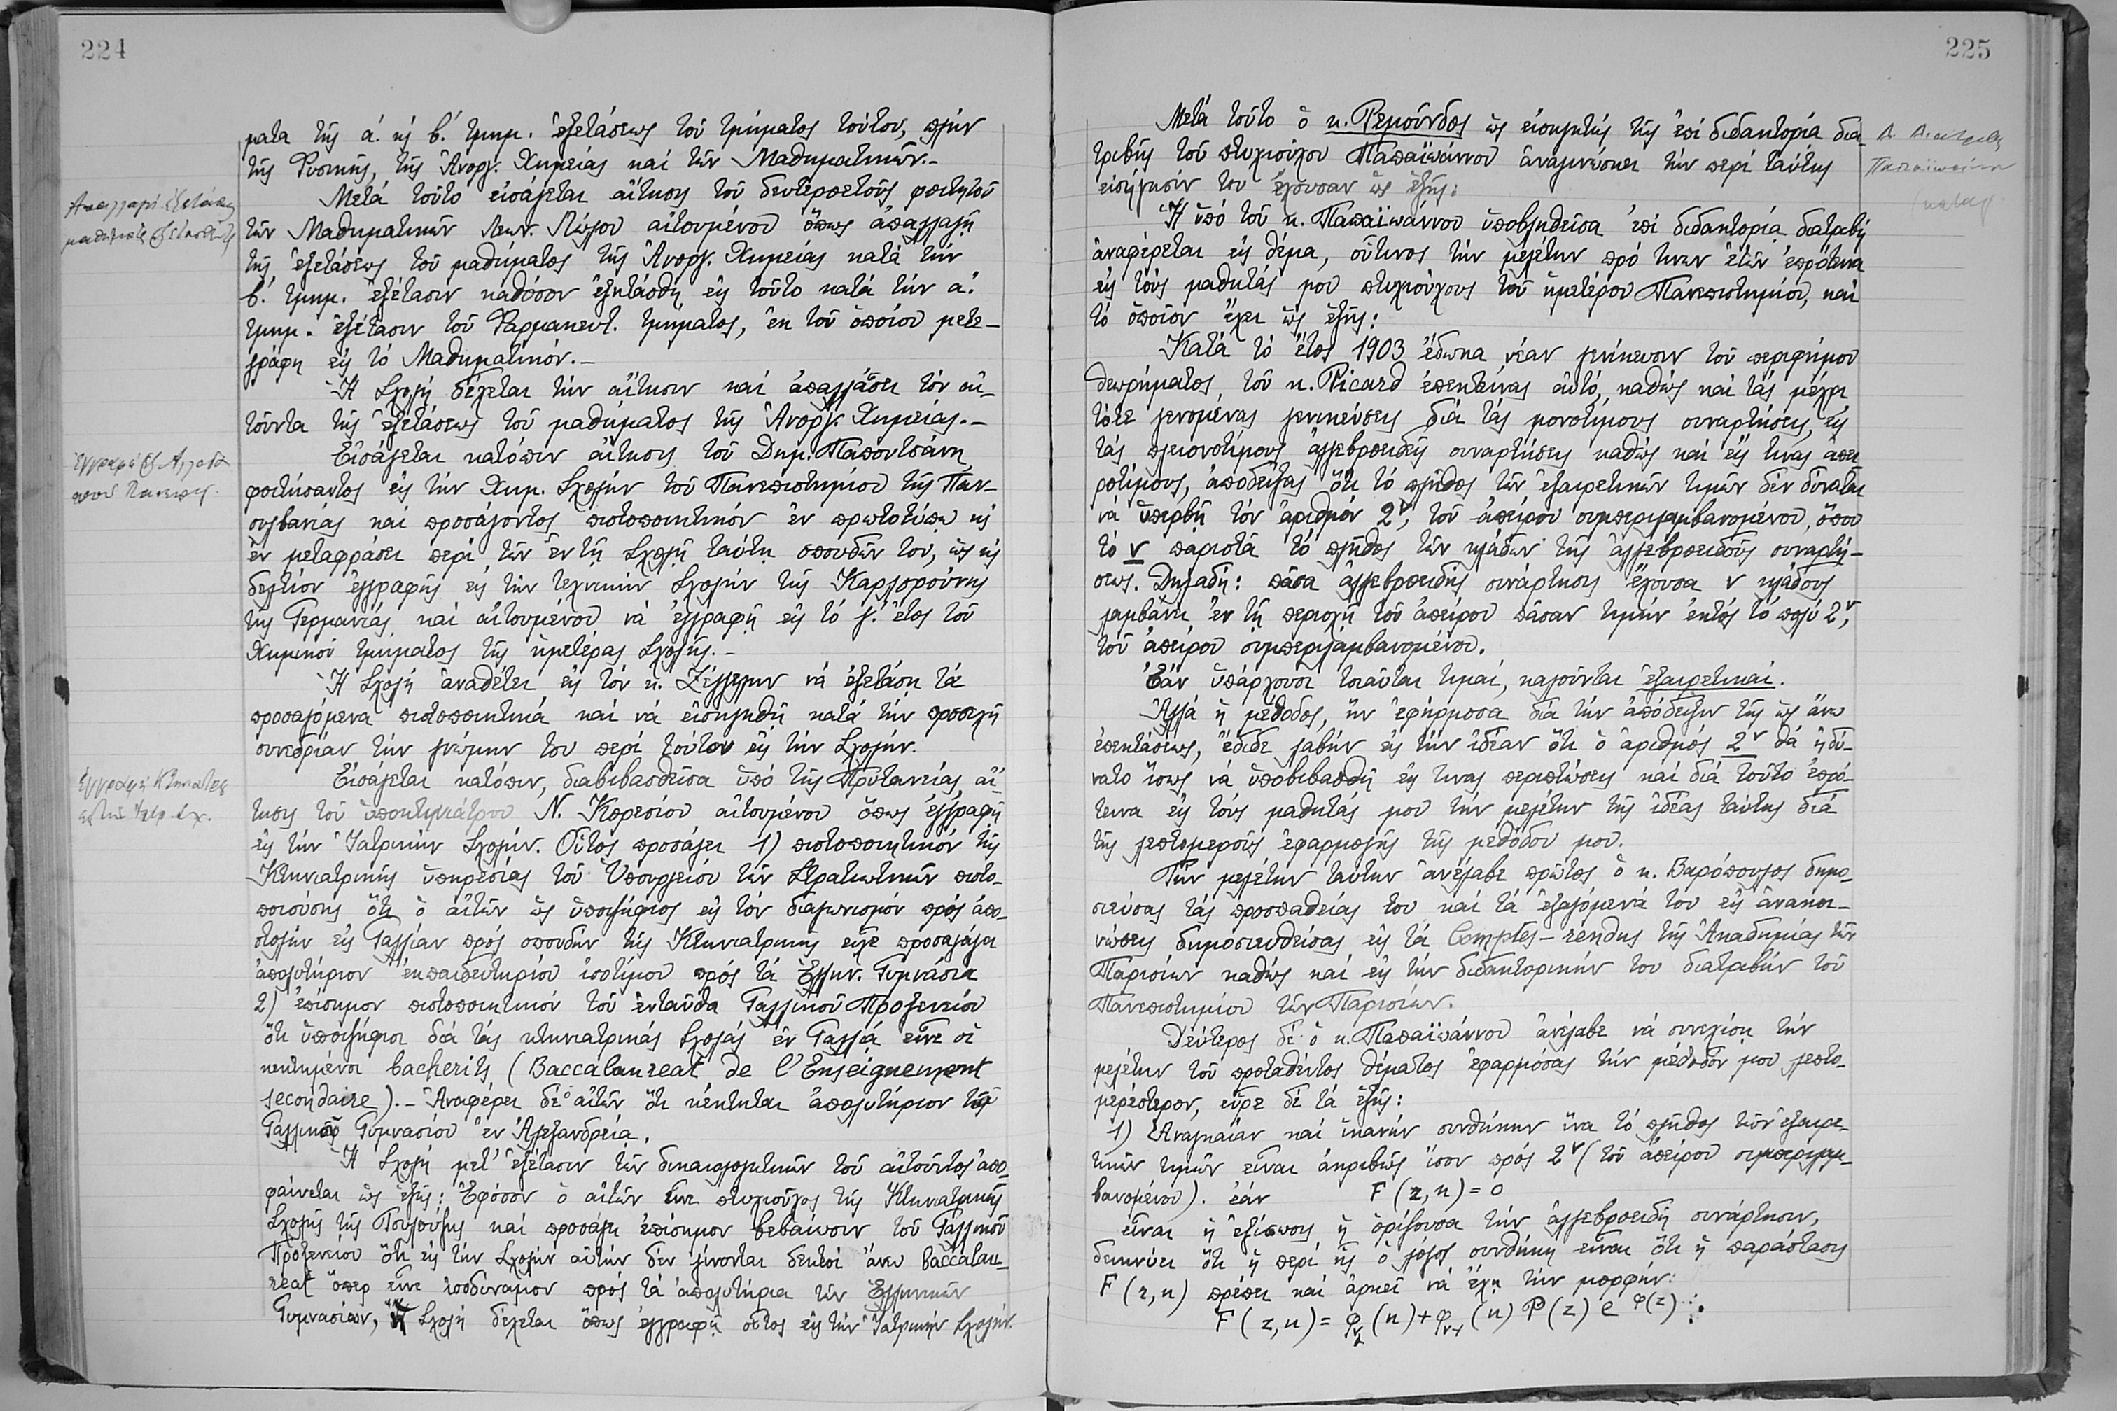 224
ματα τῆς α΄. κỳ β΄. τμημ. ἐξετάσεως τοῦ τμήματος τούτου, πλὴν
τῆς Φυσικῆς, τῆς Ἀνοργ. Χημείας καὶ τῶν Μαθηματικῶν.-
Μετὰ τοῦτο εἰσάγεται αἴτησις τοῦ δευτεροετοῦς φοιτητοῦ
τῶν Μαθηματικῶν αἰτουμένου ὅπως ἀπαλλαγῇ
τῆς ἐξετάσεως τοῦ μαθήματος τῆς Ἀνοργ. Χημείας κατὰ τὴν
β΄. τμημ. ἐξέτασιν καθόσον ἐξητάσθη εἰς τοῦτο κατὰ τὴν α΄.
τμημ. ἐξέτασιν τοῦ Φαρμακευτ. τμήματος, ἐκ τοῦ ὁποίου μετε-
γράφη εἰς τὸ Μαθηματικόν.-
Ἡ Σχολὴ δέχεται τὴν αἴτησιν καὶ ἀπαλλάσει τὸν αἰ-
τοῦντα τῆς ἐξετάσεως τοῦ μαθήματος τῆς Ἀνοργ. Χημείας.-
Εἰσάγεται κατόπιν αἴτησις τοῦ Δημ. Παπουτσάνη
φοιτήσαντος εἰς τὴν Χημ. Σχολὴν τοῦ Πανεπιστημίου τῆς Παν-
συλβανίας καὶ προσάγοντος πιστοποιητικὸν ἐν πρωτοτύπῳ κỳ
ἐν μεταφράσει περὶ τῶν ἐν τῇ Σχολῇ ταύτῃ σπουδῶν του, ὡς κỳ
δελτίον ἐγγραφῆς εἰς τὴν τεχνικὴν Σχολὴν τῆς Καρλσρούνης
τῆς Γερμανίας καὶ αἰτουμένου νὰ ἐγγραφῇ εἰς τὸ γ΄. ἔτος τοῦ
Χημικοῦ τμήματος τῆς ἡμετέρας Σχολῆς.-
Ἡ Σχολὴ ἀναθέτει εἰς τὸν κ. Ζέγγελην νὰ ἐξετάσῃ τὰ
προσαγόμενα πιστοποιητικὰ καὶ νὰ εἰσηγηθῇ κατὰ τὴν προσεχῆ
συνεδρίαν τὴν γνώμην του περὶ τούτου εἰς τὴν Σχολήν.
Εἰσάγεται κατόπιν, διαβιβασθεῖσα ὑπὸ τῆς Πρυτανείας, αἴ-
τησις τοῦ ὑποκτηνιάτρου Ν. Κορεσίου αἰτουμένου ὅπως ἐγγραφῇ
εἰς τὴν Ἰατρικὴν Σχολήν. Οὗτος προσάγει 1) πιστοποιητικὸν τῆς
Κτηνιατρικῆς ὑπηρεσίας τοῦ Ὑπουργείου τῶν Στρατιωτικῶν πιστο-
ποιούσης ὅτι ὁ αἰτῶν ὡς ὑποψήφιος εἰς τὸν διαγωνισμὸν πρὸς ἀπο-
στολὴν εἰς Γαλλίαν πρὸς σπουδὴν τῆς Κτηνιατρικῆς εἶχε προσαγάγει
ἀπολυτήριον ἐκπαιδευτηρίου ἰσοτίμου πρὸς τὰ Ἑλλην. Γυμνάσια
2) ἐπίσημον πιστοποιητικὸν τοῦ ἐνταῦθα Γαλλικοῦ Προξενείου
ὅτι ὑποψήφιοι διὰ τὰς κτηνιατρικὰς Σχολὰς ἐν Γαλλίᾳ εἶνε οἱ
κεκτημένοι (Baccalaureat de l'Enseignement
secondaire).- Ἀναφέρει δὲ ὁ αἰτῶν ὅτι κέκτηται ἀπολυτήριον τοῦ
Γαλλικοῦ Γυμνασίου ἐν Ἀλεξανδρείᾳ.
Ἡ Σχολὴ μετ' ἐξέτασιν τῶν δικαιολογητικῶν τοῦ αἰτοῦντος ἀπο-
φαίνεται ὡς ἑξῆς: Ἐφόσον ὁ αἰτῶν εἶνε πτυχιοῦχος τῆς Κτηνιατρικῆς
Σχολῆς τῆς Τουλούζης καὶ προσάγει ἐπίσημον βεβαίωσιν τοῦ Γαλλικοῦ
Προξενείου ὅτι εἰς τὴν Σχολὴν αὐτὴν δὲν γίνονται δεκτοὶ ἄνευ Baccalau-
reat ὅπερ εἶνε ἰσοδύναμον πρὸς τὰ ἀπολυτήρια τῶν Ἑλληνικῶν
Γυμνασίων, ἡ Σχολὴ δέχεται ὅπως ἐγγραφῇ οὗτος εἰς τὴν Ἰατρικὴν Σχολήν.
225
Μετὰ τοῦτο ὁ κ. Ρεμοῦνδος ὡς εἰσηγητὴς τῆς ἐπὶ διδακτορίᾳ δια-
τριβῆς τοῦ πτυχιούχου Παπαϊωάννου ἀναγινώσκει τὴν περὶ ταύτης
εἰσήγησίν του ἔχουσαν ὡς ἑξῆς:
Ἡ ὑπὸ τοῦ κ. Παπαϊωάννου ὑποβληθεῖσα ἐπὶ διδακτορίᾳ διατριβὴ
ἀναφέρεται εἰς θέμα, οὗτινος τὴν μελέτην πρό τινων ἐτῶν ἐπρότεινα
εἰς τοὺς μαθητάς μου πτυχιούχους τοῦ ἡμετέρου Πανεπιστημίου, καὶ
τὸ ὁποῖον ἔχει ὡς ἑξῆς:
Κατὰ τὸ ἔτος 1903 ἔδωκα νέαν γενίκευσιν τοῦ περιφήμου
θεωρήματος τοῦ κ. Picard ἐπεκτείνας αὐτό, καθὼς καὶ τὰς μέχρι
τότε γενομένας γενικεύσεις διὰ τὰς μονοτίμους συναρτήσεις, εἰς
τὰς πλειονοτίμους ἀλγεβροειδεῖς συναρτήσεις καθὼς καὶ εἴς τινας ἀπει-
ροτίμους, ἀποδείξας ὅτι τὸ πλῆθος τῶν ἐξαιρετικῶν τιμῶν δὲν δύναται
νὰ ὑπερβῇ τὸν ἀριθμὸν 2ν, τοῦ ἀπείρου συμπεριλαμβανομένου, ὅπου
τὸ ν παριστᾷ τὸ πλῆθος τῶν κλάδων τῆς ἀλγεβροειδοῦς συναρτή-
σεως. Δηλαδή: πᾶσα ἀλγεβροειδὴς συνάρτησις ἔχουσα ν κλάδους
λαμβάνει ἐν τῇ περιοχῇ τοῦ ἀπείρου πᾶσαν τιμὴν ἐκτὸς τὸ πολὺ 2ν,
τοῦ ἀπείρου συμπεριλαμβανομένου.
Ἐὰν ὑπάρχουσι τοιαῦται τιμαί, καλοῦνται ἐξαιρετικαί.
Ἀλλὰ ἡ μέθοδος, ἣν ἐφήρμοσα διὰ τὴν ἀπόδειξιν τῆς ὡς ἄνω
ἐπεκτάσεως, ἔδιδε λαβὴν εἰς τὴν ἰδέαν ὅτι ὁ ἀριθμὸς 2ν θὰ ἠδύ-
νατο ἴσως νὰ ὑποβιβασθῇ εἴς τινας περιπτώσεις καὶ διὰ τοῦτο ἐπρό-
τεινα εἰς τοὺς μαθητάς μου τὴν μελέτην τῆς ἰδέας ταύτης διὰ
τῆς λεπτομεροῦς ἐφαρμογῆς τῆς μεθόδου μου.
Τὴν μελέτην ταύτην ἀνέλαβε πρῶτος ὁ κ. Βαρόπουλος δημο-
σιεύσας τὰς προσπαθείας του καὶ τὰ ἐξαγόμενά του εἰς ἀνακοι-
νώσεις δημοσιευθείσας εἰς τὰ Comptes-rendus τῆς Ἀκαδημίας τῶν
Παρισίων καθὼς καὶ εἰς τὴν διδακτορικήν του διατριβὴν τοῦ
Πανεπιστημίου τῶν Παρισίων.
Δεύτερος δὲ ὁ κ. Παπαϊωάννου ἀνέλαβε νὰ συνεχίσῃ τὴν
μελέτην τοῦ προταθέντος θέματος ἐφαρμόσας τὴν μέθοδόν μου λεπτο-
μερέστερον, εὗρε δὲ τὰ ἑξῆς:
1) Ἀναγκαίαν καὶ ἱκανὴν συνθήκην ἵνα τὸ πλῆθος τῶν ἐξαιρε-
τικῶν τιμῶν εἶναι ἀκριβῶς ἴσον πρὸς 2ν (τοῦ ἀπείρου συμπεριλαμ-
βανομένου). ἐὰν F (z, u) = 0
εἶναι ἡ ἐξίσωσις ἡ ὁρίζουσα τὴν ἀλγεβροειδῆ συνάρτησιν,
δεικνύει ὅτι ἡ περὶ ἧς ὁ λόγος συνθήκη εἶναι ὅτι ἡ παράστασις
F (z, u) πρέπει καὶ ἀρκεῖ νὰ ἔχῃ τὴν μορφήν:
F (z, u) = φν (u) + φν-1 (u) P (z) e φ(z)